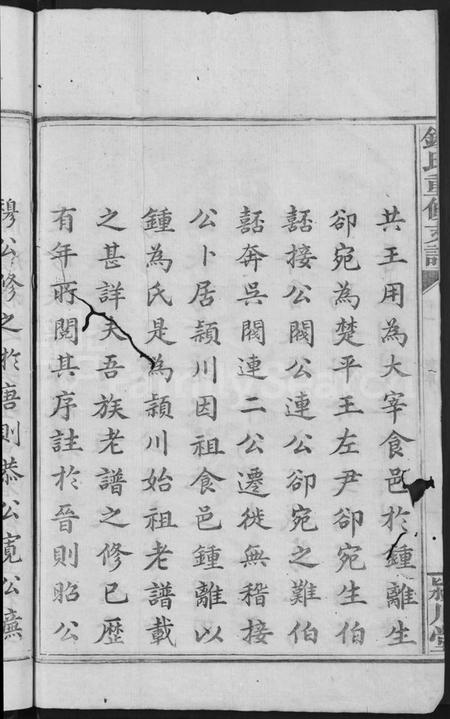 鍾氏重修支譜
潁川堂
共王用為大宰食邑於鍾離生
卻宛為楚平王左尹卻宛生伯
嚭接公閣公連公卻宛之難伯
嚭奔吳閣連二公遷徙無稽接
公卜居頴川因祖食邑鍾離以
鍾為氏是為頴川始祖老譜載
之甚詳夫吾族老譜之修已歷
有年所閱其序註於晉則昭公
穆公修之於唐則恭公寬公